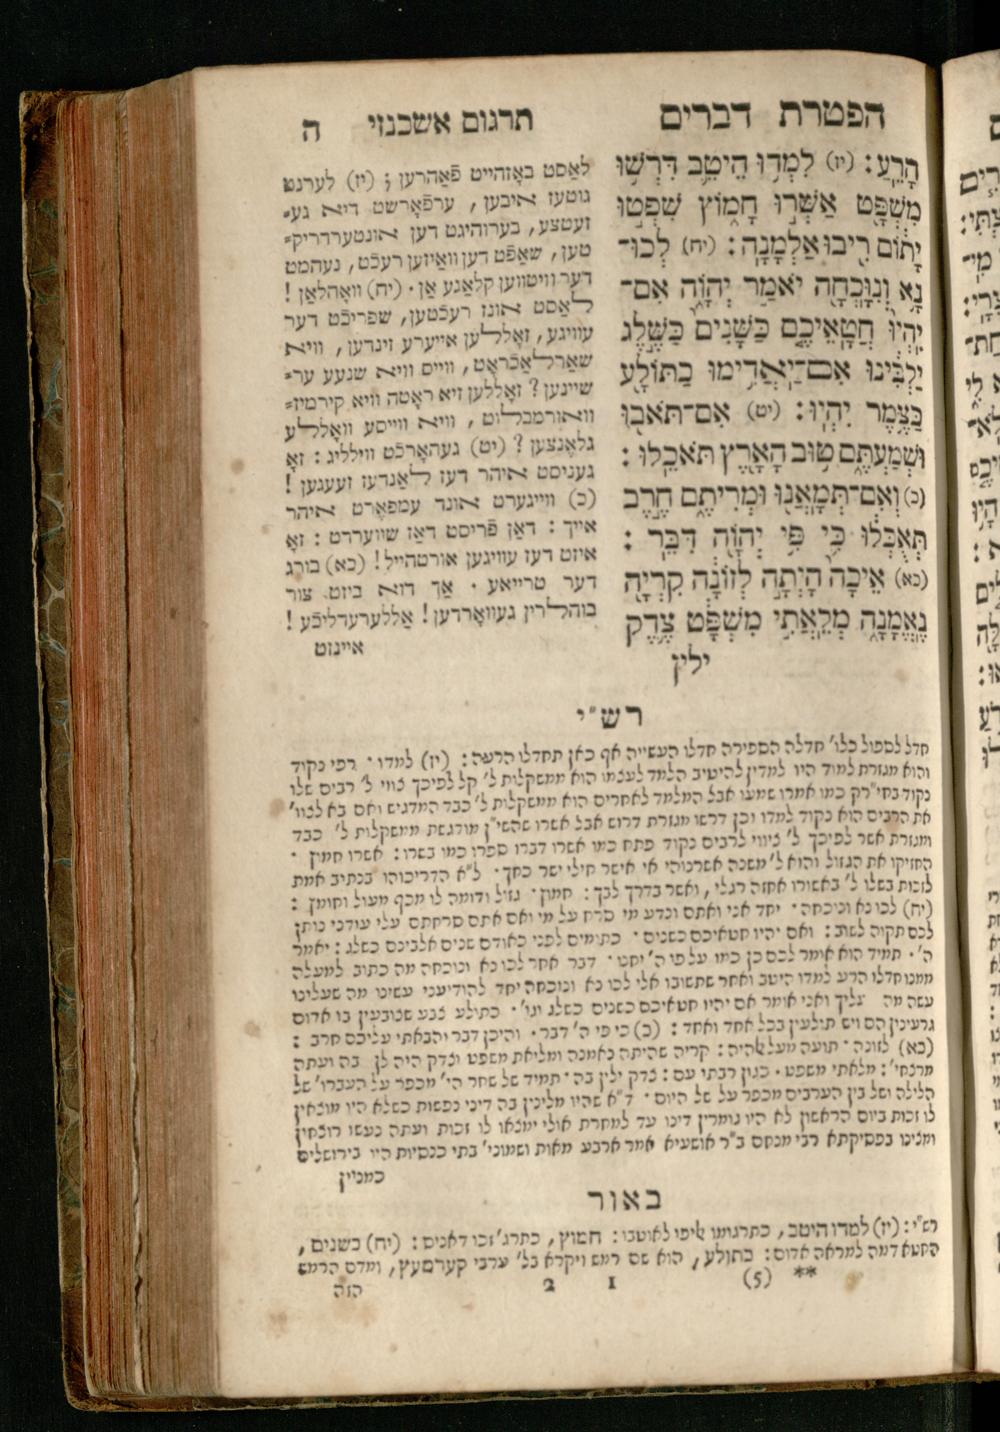 הפטרת דברים תרגום אשכנזי ה
הָרֵֽעַ׃ (יז) לִמְד֥וּ הֵיטֵ֛ב דִּרְשׁ֥וּ
מִשְׁפָּ֖ט אַשְּׁר֣וּ חָמ֑וֹץ שִׁפְט֣וּ
יָת֔וֹם רִ֖יבוּ אַלְמָנָֽה׃ (יח) לְכוּ־
נָ֛א וְנִוָּֽכְחָ֖ה יֹאמַ֣ר יְהוָ֑ה אִם־
יִֽהְי֨וּ חֲטָאֵיכֶ֤ם כַּשָּׁנִים֙ כַּשֶּׁ֣לֶג
יַלְבִּ֔ינוּ אִם־יַאְדִּ֥ימוּ כַתּוֹלָ֖ע
כַּצֶּ֥מֶר יִהְיֽוּ׃ (יט) אִם־תֹּאב֖וּ
וּשְׁמַעְתֶּ֑ם ט֥וּב הָאָ֖רֶץ תֹּאכֵֽלוּ׃
(כ) וְאִם־תְּמָאֲנ֖וּ וּמְרִיתֶ֑ם חֶ֣רֶב
תְּאֻכְּל֔וּ כִּ֛י פִּ֥י יְהוָ֖ה דִּבֵּֽר׃
(כא) אֵיכָה֙ הָיְתָ֣ה לְזוֹנָ֔ה קִרְיָ֖ה
נֶאֱמָנָ֑ה מְלֵאֲתִ֣י מִשְׁפָּ֗ט צֶ֛דֶק
ילין
לאַסט באָזהייט פֿאַהרען ; (יז) לערנט
גוטעז איבען , ערפֿאָרשט דיא גע=
זעטצע, בערוהיגט דען אונטערדריק=
טען, שאַפֿט דען וואַיזען רעכֿט, נעהמט
דער וויטווען קלאַגע אַן · (יח) וואָהלאַן !
לאַסט אונז רעכֿטען, שפריכֿט דער
עוויגע, זאָללען אייערע זינדען, וויא
שאַרלאַכֿראָט, ווייס וויא שנעע ער=
שיינען ? זאָללען זיא ראָטה וויא קירמיז=
וואורמבלוט , וויא ווייסע וואָללע
גלאֶנצען ? (יט) געהאָרכֿט וויללי​ג : זאָ
געניסט איהר דעז לאַנדעז זעעגען !
(כ) ווייגערט אונד עמפאֶרט איהר
אייך : דאַן פֿריסט דאַז שווערדט : זאָ
איזט דעז עוויגען אורטהייל ! (כא) בורג
דער טרייאע · אַך דוא ביזט צור
בוהלרין געוואָרדען ! אַללערעדליכֿע !
איינזט
רש״י
חדל לספול כלו׳ חדלה הספירה חדלו העשייה אף כאן תחדלו הרעה : (יז) למדו · רפי נקוד
והוא מגזרת למוד היו למדין להיטיב הלמד לעצמו הוא ממשקלות ל׳ קל לפיכך צווי ל׳ רבים שלו
נקוד בחי״רק כמו אמרו שמעו אבל המלמד לאחרים הוא ממשקלות ל׳ כבד המדגיש ואם בא לצוו׳
את הרבים הוא נקוד למדו וכן דרשו מגזרת דרוש אבל אשרו שהשי״ן מודגשת ממשקלות ל׳ כבד
ומגזרת אשר לפיכך ל׳ ציווי לרבים נקוד פתח כמו אשרו דברו ספרו כמו בשרו : אשרו חמוץ ·
החזיקו את הגזול והוא ל׳ משנה אשרנוהי אי אישר חילי ישר כחך · ל״א הדריכוהו בנתיב אמת
לזכות בשלו ל׳ באשורו אחזה רגלי , ואשר בדרך לבך : חמוץ · גזול ודומה לו מכף מעול וחומץ :
(יח) לכו נא ונוכחה · יחד אני ואתם ונדע מי סרח על מי ואם אתם סרחתם עלי עודני נותן
לכם תקוה לשוב : ואם יהיו חטאיכם כשנים · כתומים לפני כאודם שנים אלבינם כשלג : יאמר
ה׳ · תמיד הוא אומר לכם כן כמו על פי ה׳ יחנו · דבר אחר לכו נא ונוכחה מה כתוב למעלה
ממנו חדלו הרע למדו היטב ואחר שתשובו אלי לכו נא ונוכחה יחד להודיעני עשינו מה שעלינו
עשה מה עליך ואני אומר אם יהיו חטאיכם כשנים כשלג וגו׳ · כתולע צבע שצובעין בו אדום
גרעינין הם ויש תולעין בכל אחד ואחד : (כ) כי פי ה׳ דבר · והיכן דבר והבאתי עליכם חרב :
(כא) לזונה · תועה מעל אלהיה : קריה שהיתה נאמנה ומליאת משפט וצדק היה לן בה ועתה
מרצחי׳ : מלאתי משפט · כגון רבתי עם : צדק ילין בה · תמיד של שחר הי׳ מכפר על העברו׳ של
הלילה ושל בין הערבים מכפר על של היום · ד״א שהיו מלינין בה דיני נפשות כשלא היו מוצאין
לו זכות ביום הראשון לא היו גומרין דינו עד למחרת אולי ימצאו לו זכות ועתה נעשו רוצחין
ומצינו בפסיקתא רבי מנחם ב״ר אושעיא אמר ארבע מאות ושמוני׳ בתי כנסיות היו בירושלים
כמנין
באור
רש״י : (יז) למדו היטב , כתרגומו אליפו לאוטבו : חמוץ , כתרג׳ זכו דאניס : (יח) כשנים ,
החטא דמה למראה אדום : כתולע , הוא שם רמש ויקרא בל׳ ערבי קערמעץ , ומדם הרמש
** (5) 1 2 הזה